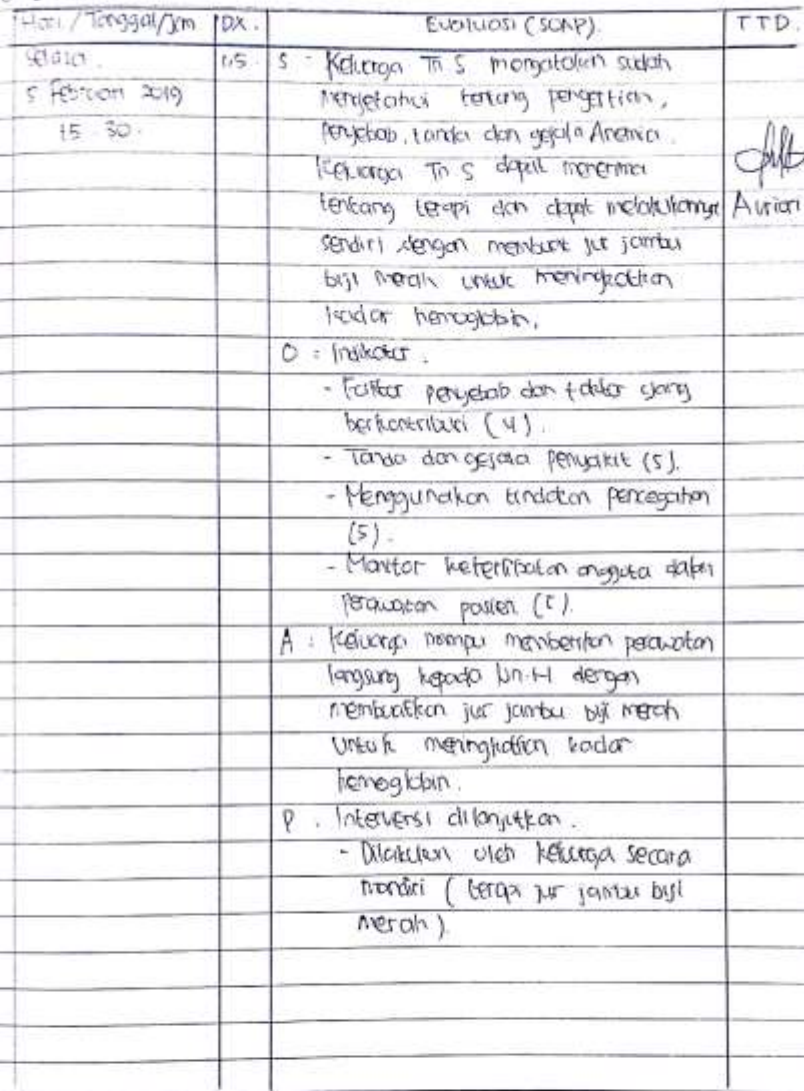 Hari / Tanggal/Jam DX. Evaluasi (SOAP). TTD.
Selasa. 1,5 S - Keluarga Tn S mengatakan sudah
5 Februari 2019 mengetahui tentang pengertian,
15 30. penyebab, tanda dan gejala Anemia.
Keluarga Tn S dapat menerima
tentang terapi dan dapat melakukannya
sendiri dengan membuat jus jambu
biji merah untuk meningkatkan
kadar hemoglobin,
O : Indikator.
- Faktor penyebab dan faktor yang
berkontribusi (4).
- Tanda dan gejala penyakit (5).
- Menggunakan tindakan pencegahan
(5).
- Monitor keterlibatan anggota dalam
perawatan pasien
A : Keluarga mampu memberikan perawatan
langsung kepada dengan
membuatkan jus jambu biji merah
untuk meningkatkan kadar
hemoglobin.
P . Intervensi dilanjutkan.
- Dilakukan oleh keluarga secara
mandiri ( terapi jus jambu biji
merah )